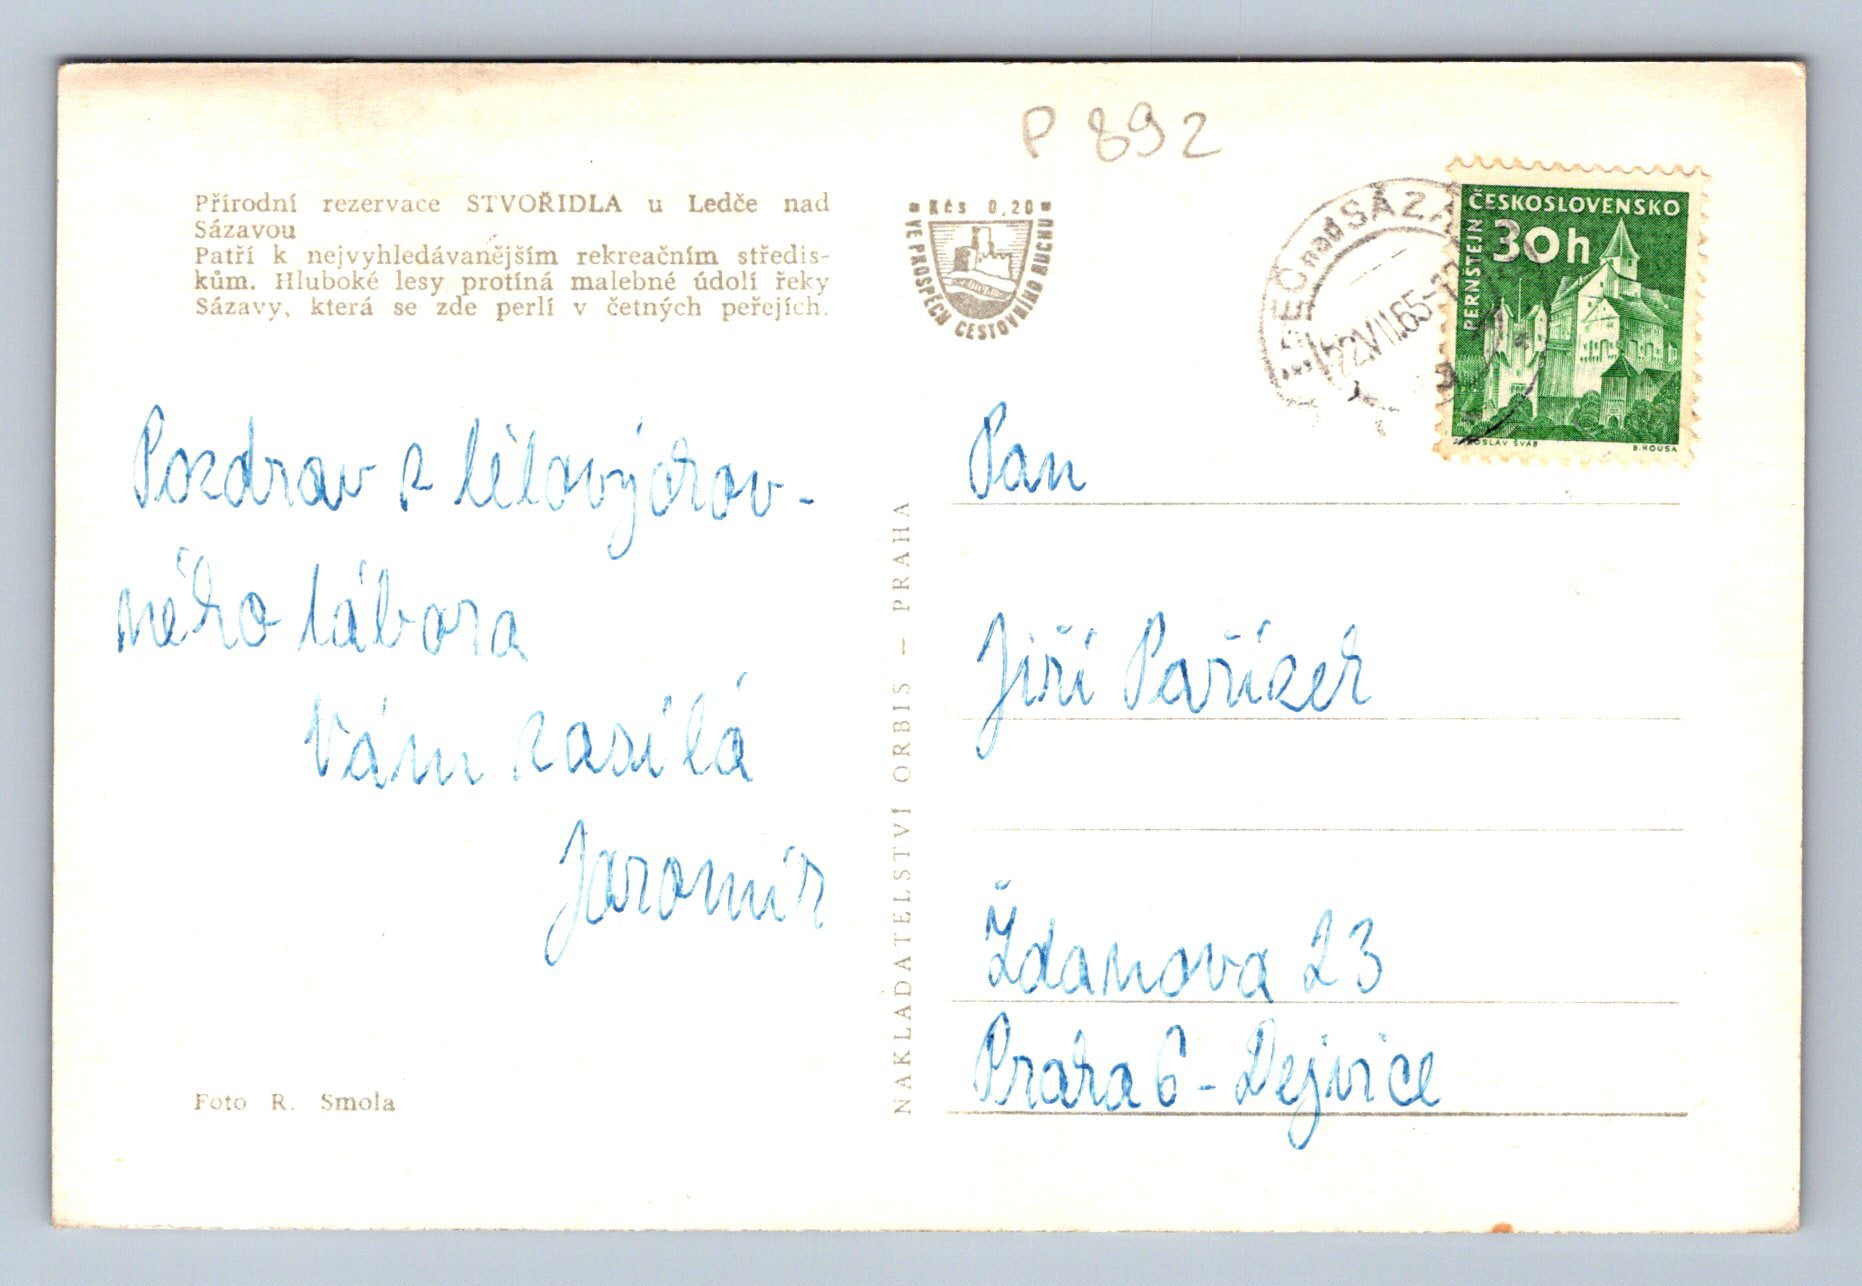 P 892
Přírodní rezervace STVOŘIDLA u Ledče nad
Sázavou
Patří k nejvyhledávanějším rekreačním středis-
kům. Hluboké lesy protíná malebné údolí řeky
Sázavy, která se zde perlí v četných peřejích.
Kčs 0,20
VE PROSPĚCH CESTOVNÍHO RUCHU
nad SÁZA
22.VII.65-
ČESKOSLOVENSKO
30h
PERNŠTEJN
JAROSLAV ŠVÁB
B. HOUSA
Pozdrav z létovýdrov-
ného tábora
Vám zasílá
Jaromír
Foto R. Smola
NAKLADATELSTVÍ ORBIS — PRAHA
Pan
Jiří Pařízek
Ždanova 23
Praha 6 - Dejvice